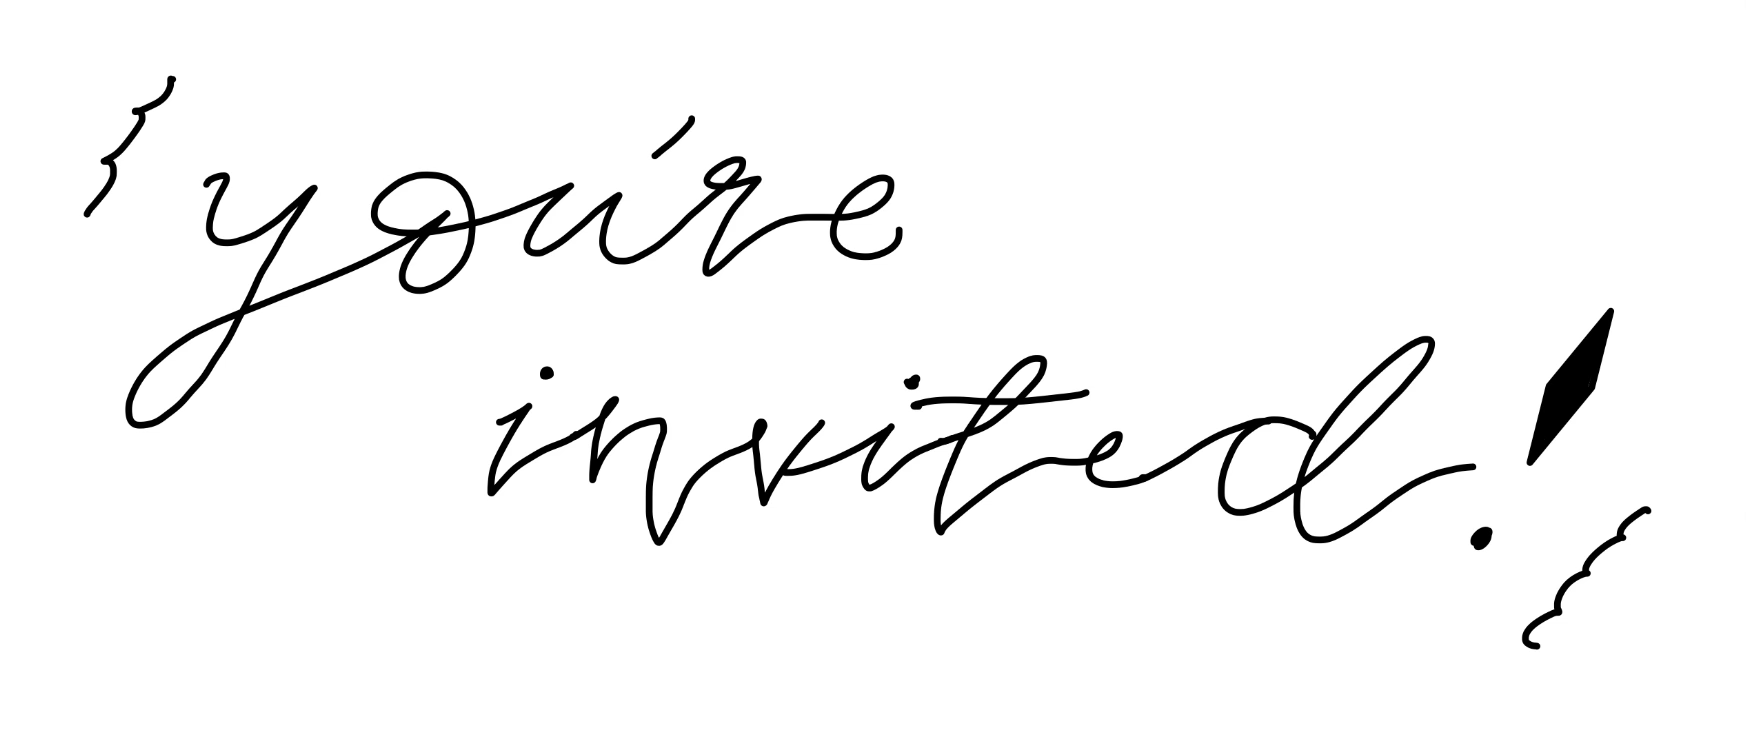 you're
invited!